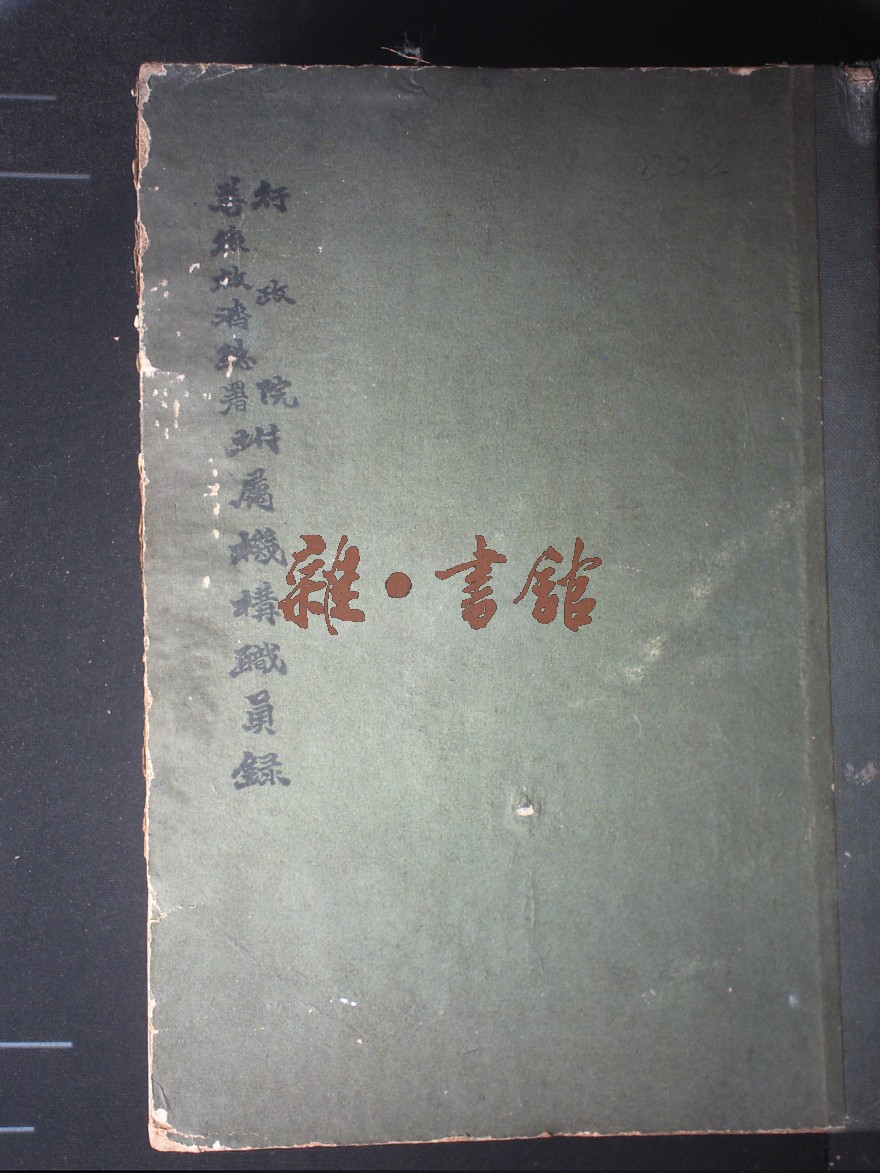 行政院
善後救濟總署
附屬機構職員錄
雜·書館